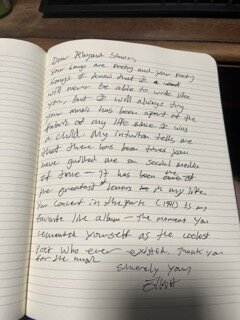 Dear Rhymin Simon,
Your songs are poetry and your poetry
songs. I know that I
will never be able to write like
you, but I will always try.
your music has been apart of the
fabric of my life since I was
a child. My intuition tells me
that there was been times you
have guided me on social media
of have – It has been one of
the greatest honors in my life.
Your Concert in the park (1991) is my
favorite live album – The moment you
cemented yourself as the coolest
Poet who ever existed. Thank you
for the music
Sincerely your
Elliott